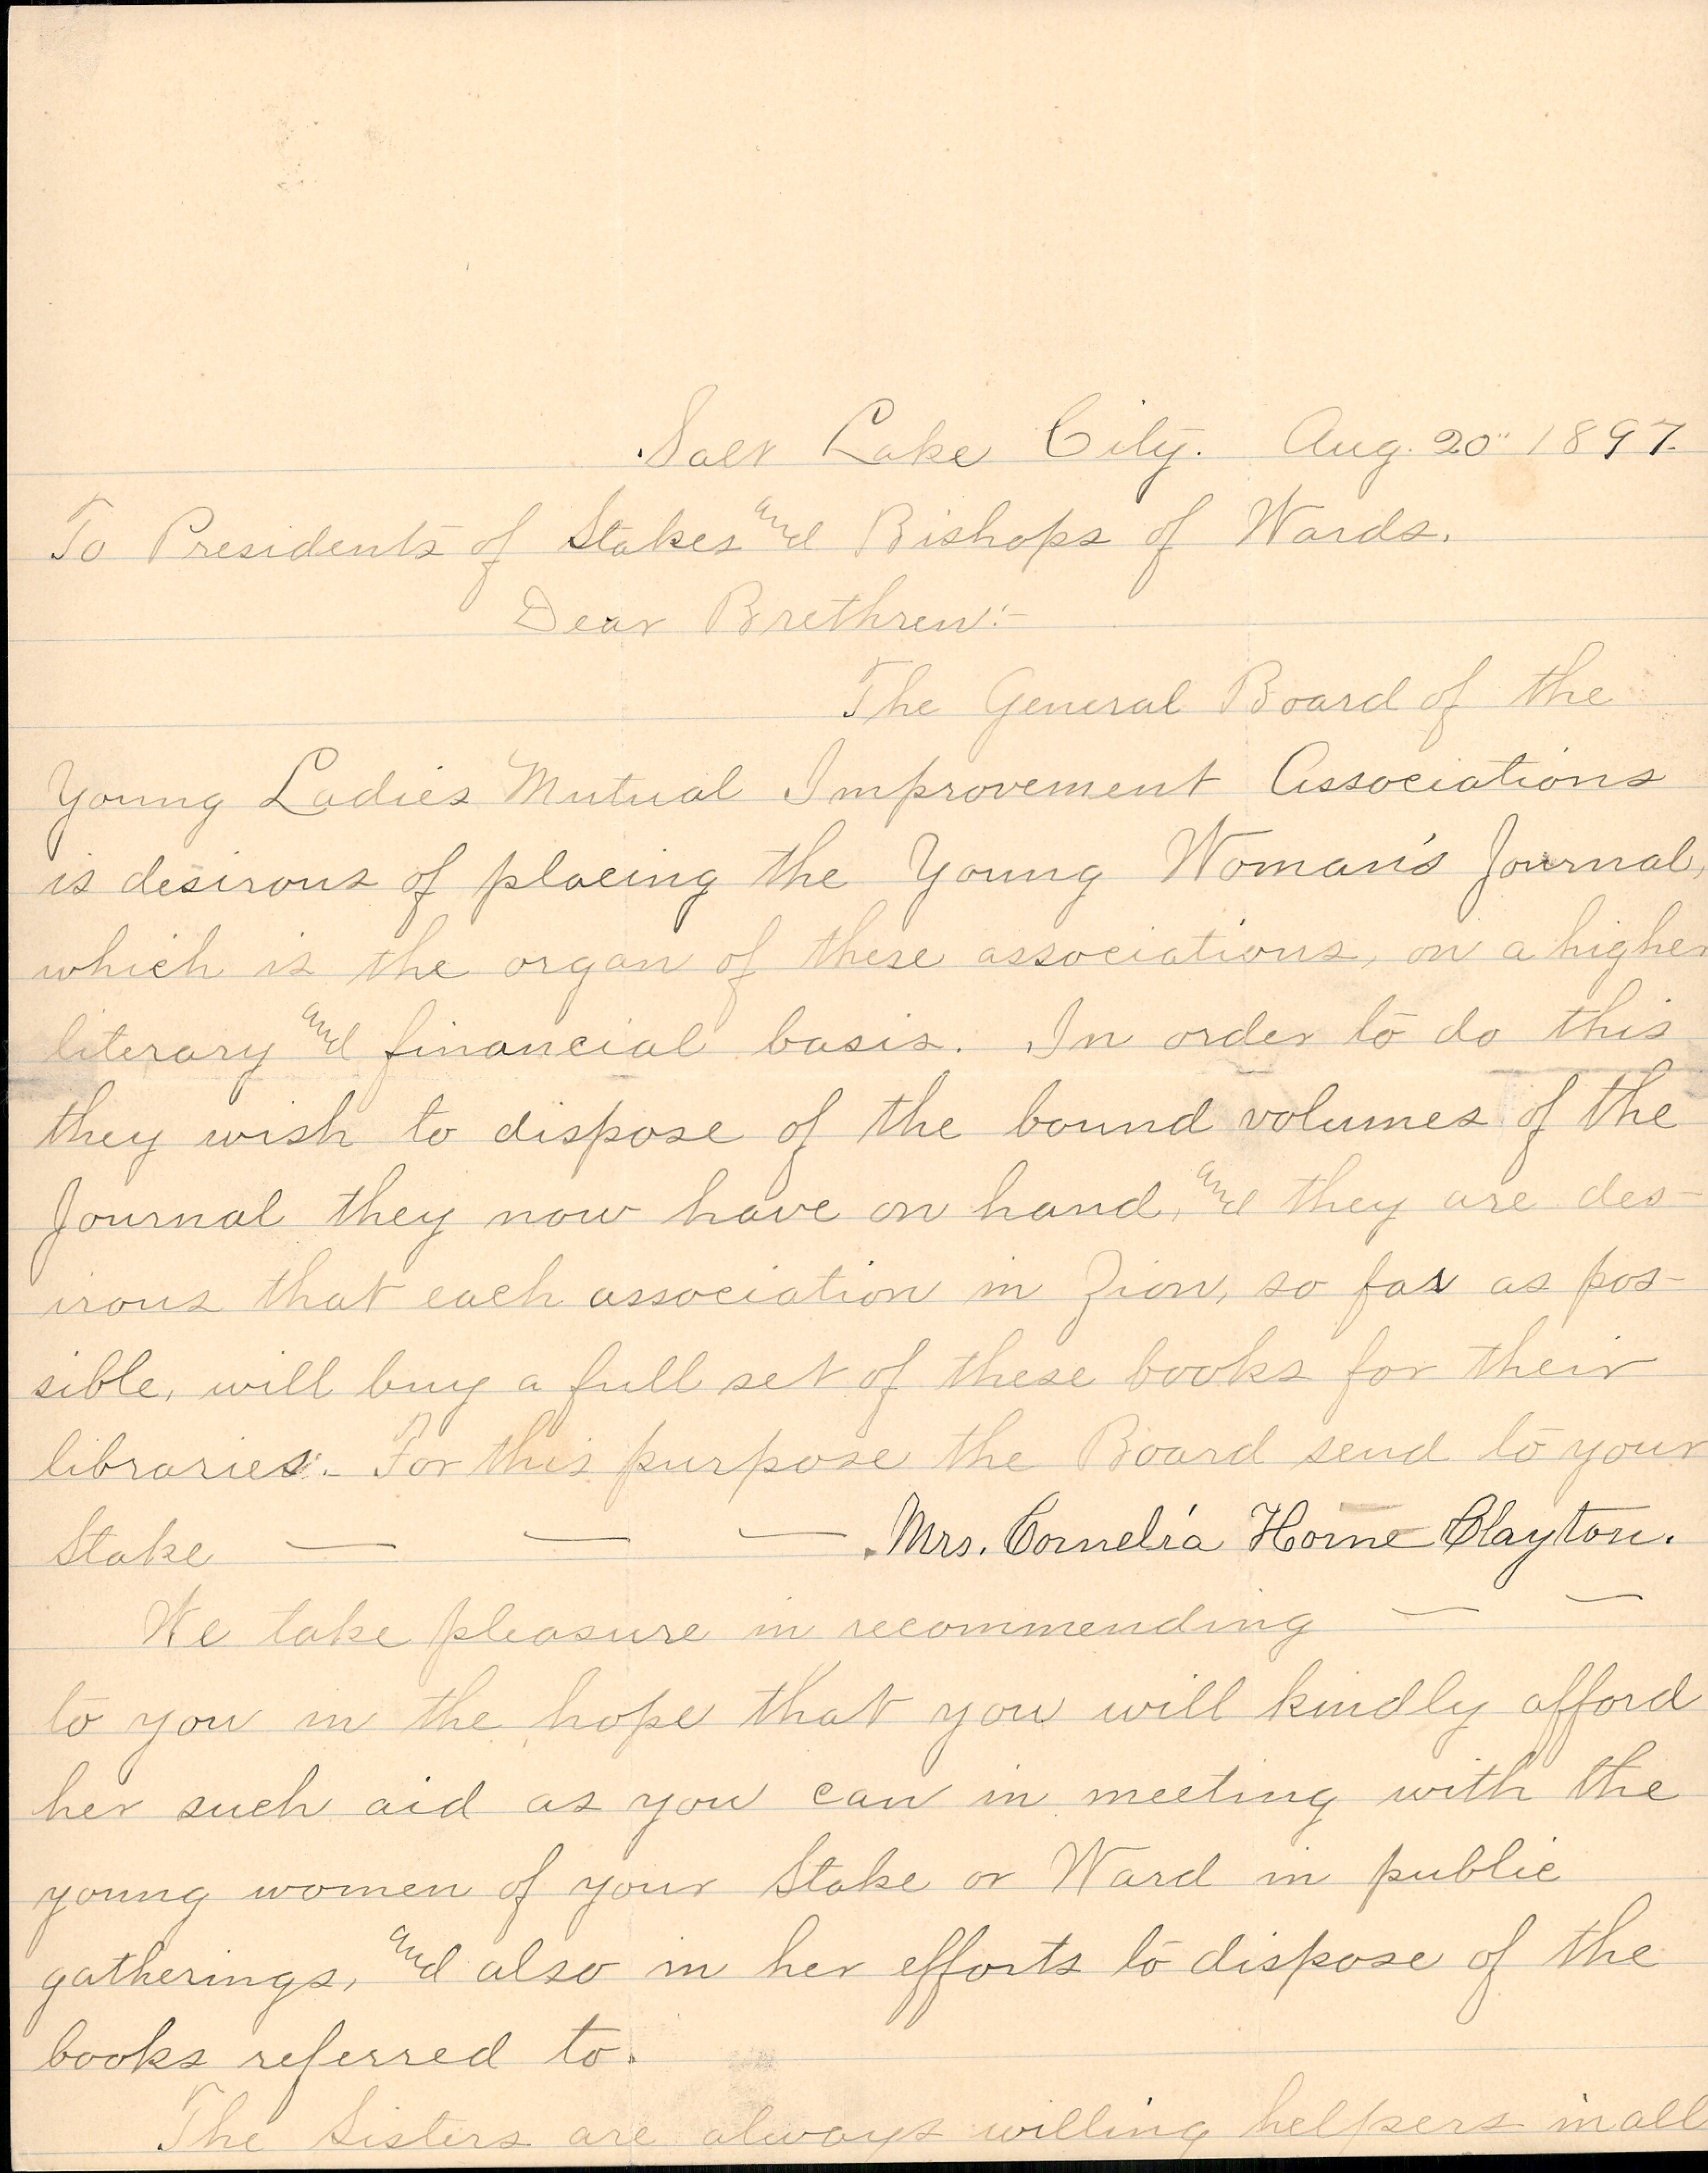 Salt Lake City. Aug. 20" 1897.
To Presidents of Stakes and Bishops of Wards.
Dear Brethren:-
The General Board of the
Young Ladies Mutual Improvement Associations
is desirous of placing the Young Woman's Journal,
which is the organ of these associations, on a higher
literary and financial basis. In order to do this
they wish to dispose of the bound volumes of the
Journal they now have on hand, and they are des-
irous that each association in Zion, so far as pos-
sible, will buy a full set of these books for their
libraries. - For this purpose the Board send to your
Stake — — — Mrs. Cornelia Horne Clayton.
We take pleasure in recommending — —
to you in the hope that you will kindly afford
her such aid as you can in meeting with the
young women of your Stake or Ward in public
gatherings, and also in her efforts to dispose of the
books referred to.
The Sisters are always willing helpers in all